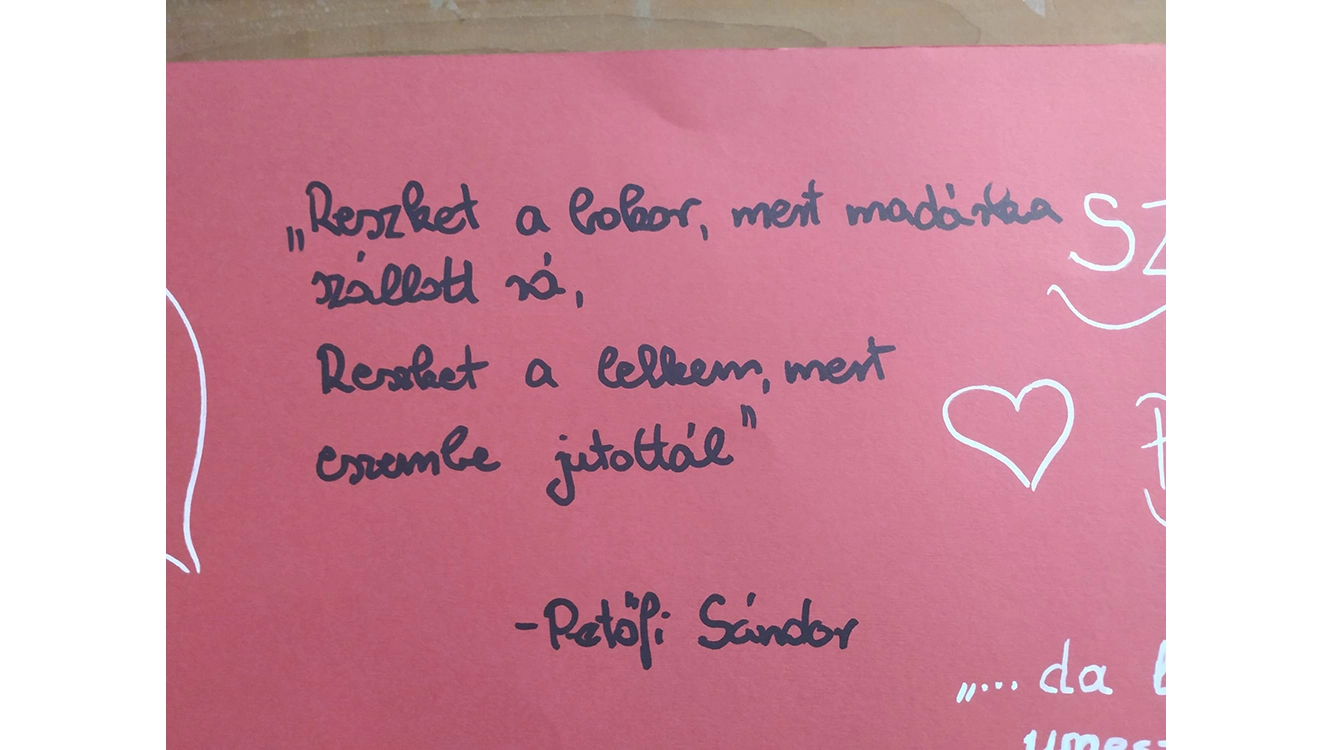 „Reszket a bokor, mert madárkaa
szállott rá,
Reszket a lelkem, mert
eszembe jutottál"
-Petőfi Sándor
SZ
„... da